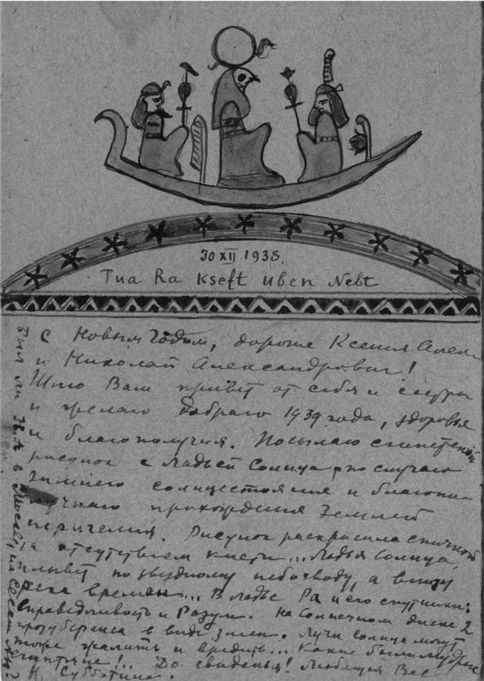 30 XII 1938.
Tua Ra Kseft Uben Nebt
С Новым Годом, дорогие Ксения Ален
и Николай Александрович!
Шлю Вам привет от себя и сестры
и желаю доброго 1939 года, здоровья
и благополучия. Посылаю египетский
рисунок с Ладьей Солнца, по случаю
зимнего солнцестояния и благопо
лучного прохождения Землей
перигелия. Рисунок раскрасила спичкой
за отсутствием кисти... Ладья Солнца
плывет по звездному небосводу, а внизу
река времен... В ладье Ра и его спутники:
Справедливость и Разум. На Солнечном диске 2
в виде змеи. Лучи солнца могут
тоже жалить и вредить... Какие были мудрые
египтяне!... До свиданья! Любящая Вас
Н. Субботина.
ли Н.А. в Москве, на